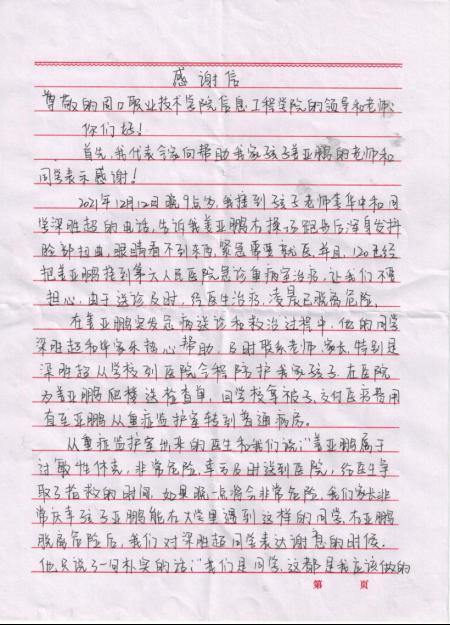 感谢信
尊敬的周口职业技术学院信息工程学院的领导和老师:
你们好!
首先,我代表全家向帮助我家孩子姜亚鹏的老师和
同学表示感谢!
2021年12月12日晚9点左右,我接到孩子老师李华中和同
学深胜超的电话,告诉我姜亚鹏在操场跑步后浑身发抖
脸部扭曲,眼睛看不到东西,紧急需要就医,并且,120已经
把姜亚鹏接到第六人民医院急诊重病室治疗,让我们不要
担心,由于送诊及时,经医生治疗,凌晨已脱离危险。
在姜亚鹏突发急病送诊和救治过程中,他的同学
深胜超和牛家乐热心帮助,及时联系老师、家长,特别是
深胜超从学校到医院全程陪护我家孩子,在医院
为姜亚鹏爬楼送检查单,回学校拿被子,交付医药费用
直至亚鹏从重症监护室转到普通病房。
从重症监护室出来的医生和我们说:"姜亚鹏属于
过敏性休克,非常危险,幸亏及时送到医院,给医生争
取了抢救的时间,如果晚一点将会非常危险,我们家长非
常庆幸孩子亚鹏能在大学里遇到这样的同学,在亚鹏
脱离危险后,我们对深胜超同学表达谢意的时候,
他只说了一句朴实的话:"我们是同学,这都是我应该做的
第 页